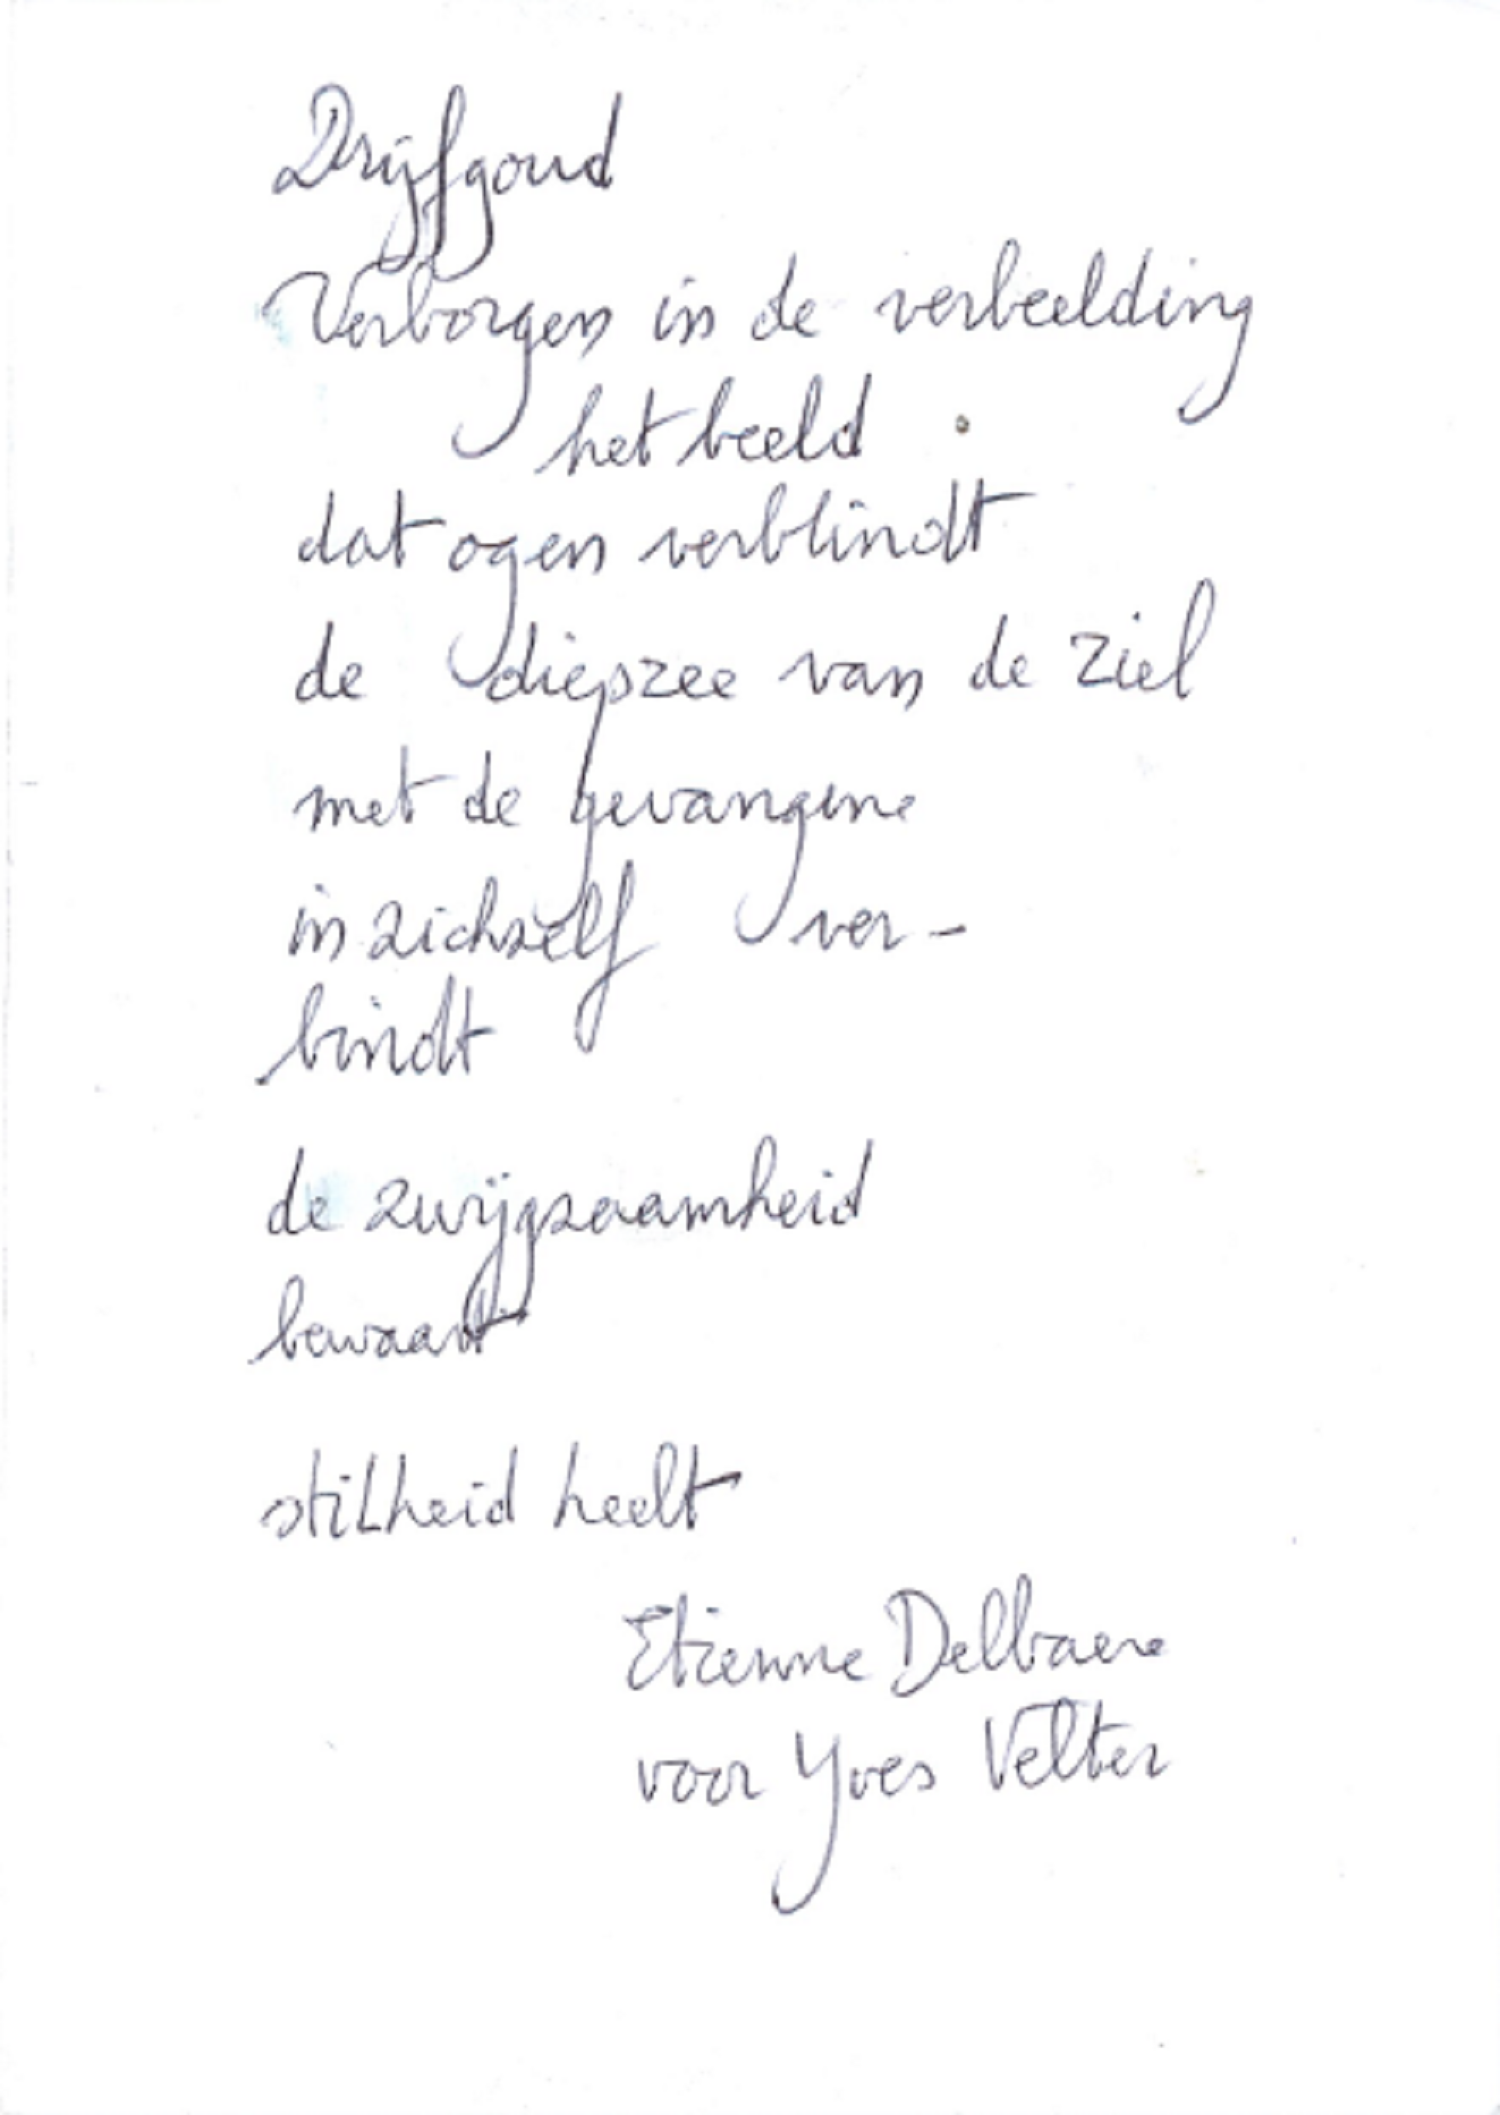 Drijfgoud
Verborgen in de verbeelding
het beeld
dat ogen verblindt
de diepzee van de ziel
met de gevangene
in zichzelf ver-
bindt
de zwijgzaamheid
bewaart
stilheid heelt
Etienne Delbaere
voor Yves Velter